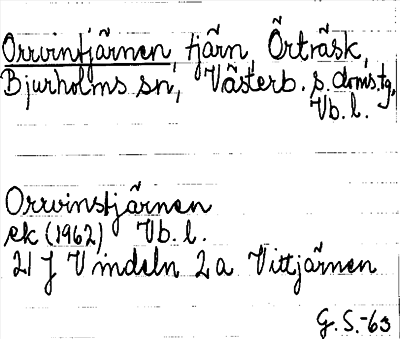 Orrvintjärnen, tjärn, Örträsk,
Bjurholms sn, Västerb. s. doms.tg,
Vb. l.
Orrvinstjärnen
ek (1962) Vb. l.
21 J Vindeln 2a Vittjärnen
G. S. -63